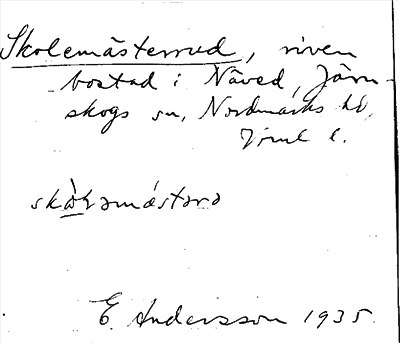 Skolemästerud, riven
bostad i Näved, Järn-
skogs sn, Nordmarks hd,
Vrml l.
skὰləmástərə
E. Andersson 1935.